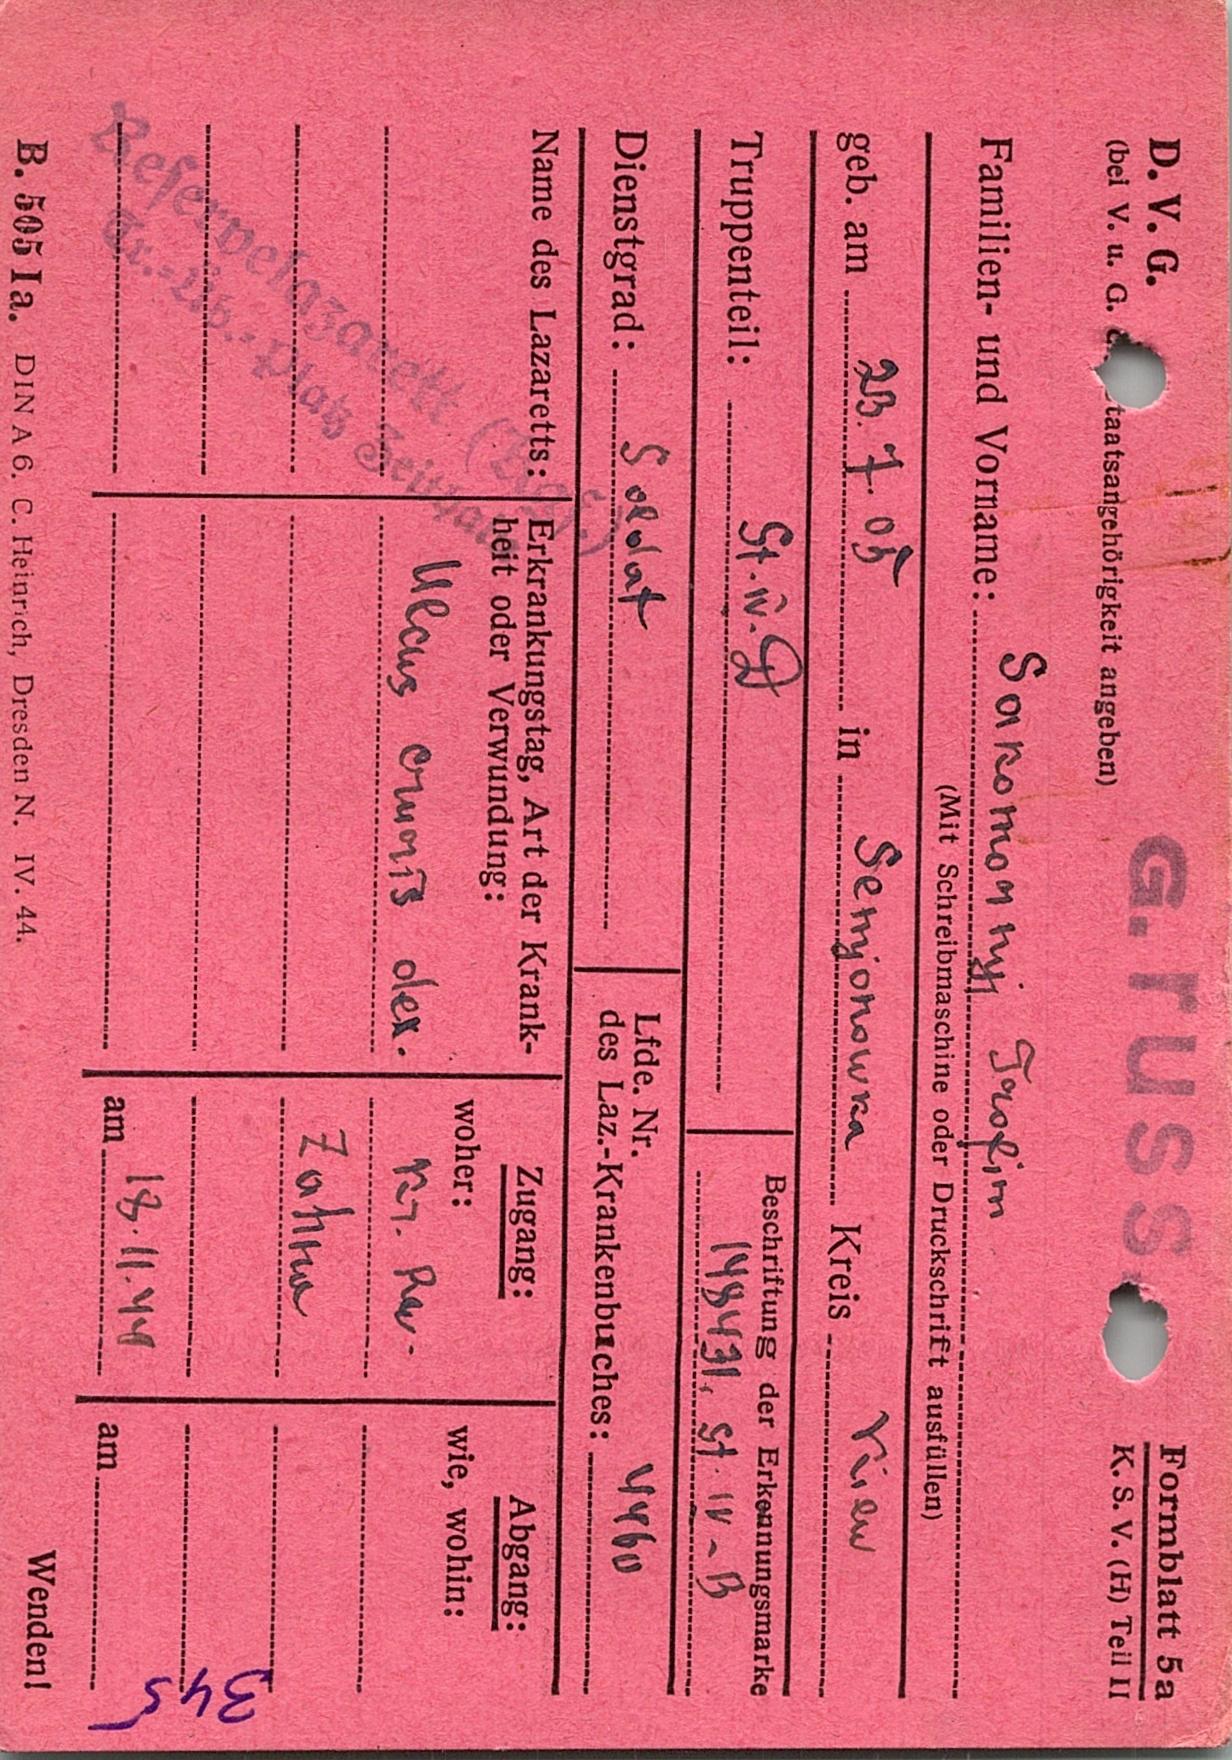 D. V. G. G. russ. Formblatt 5a
(bei V. u. G. Staatsangehörigkeit angeben) K. S. V. (H) Teil II
Familien- und Vorname: Sakomonnyj Trofim
(Mit Schreibmaschine oder Druckschrift ausfüllen)
geb. am 23.7.05 in Semjonowka Kreis Kiew
Truppenteil: St. IV. D
Beschriftung der Erkennungsmarke
148431, St. IV-B
Dienstgrad: Soldat
Lfde. Nr.
des Laz.-Krankenbuches: 4460
Name des Lazaretts:
Reservelazarett (Kgf.)
Tr.-Üb.-Platz Zeithain
Erkrankungstag, Art der Krank-
heit oder Verwundung:
Ulcus cruris dex.
Zugang:
woher:
Kr. Rev.
Zahna
am 18.11.44
Abgang:
wie, wohin:
am
345
B. 505 Ia. DIN A 6. C. Heinrich, Dresden N. IV. 44.
Wenden!